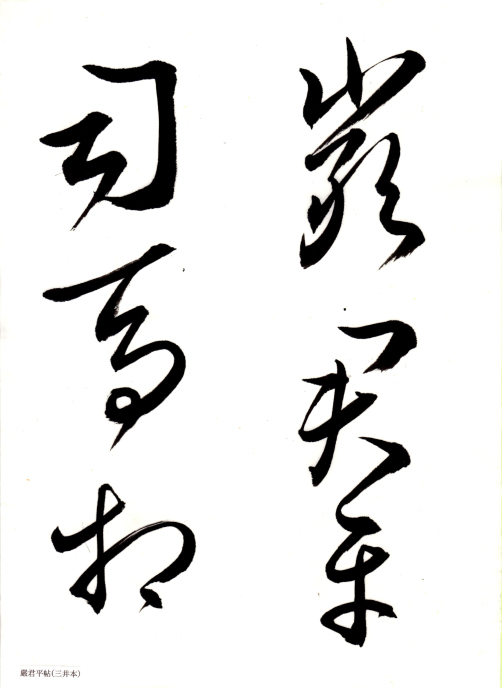 嚴君平
司馬相
嚴君平帖(三井本)